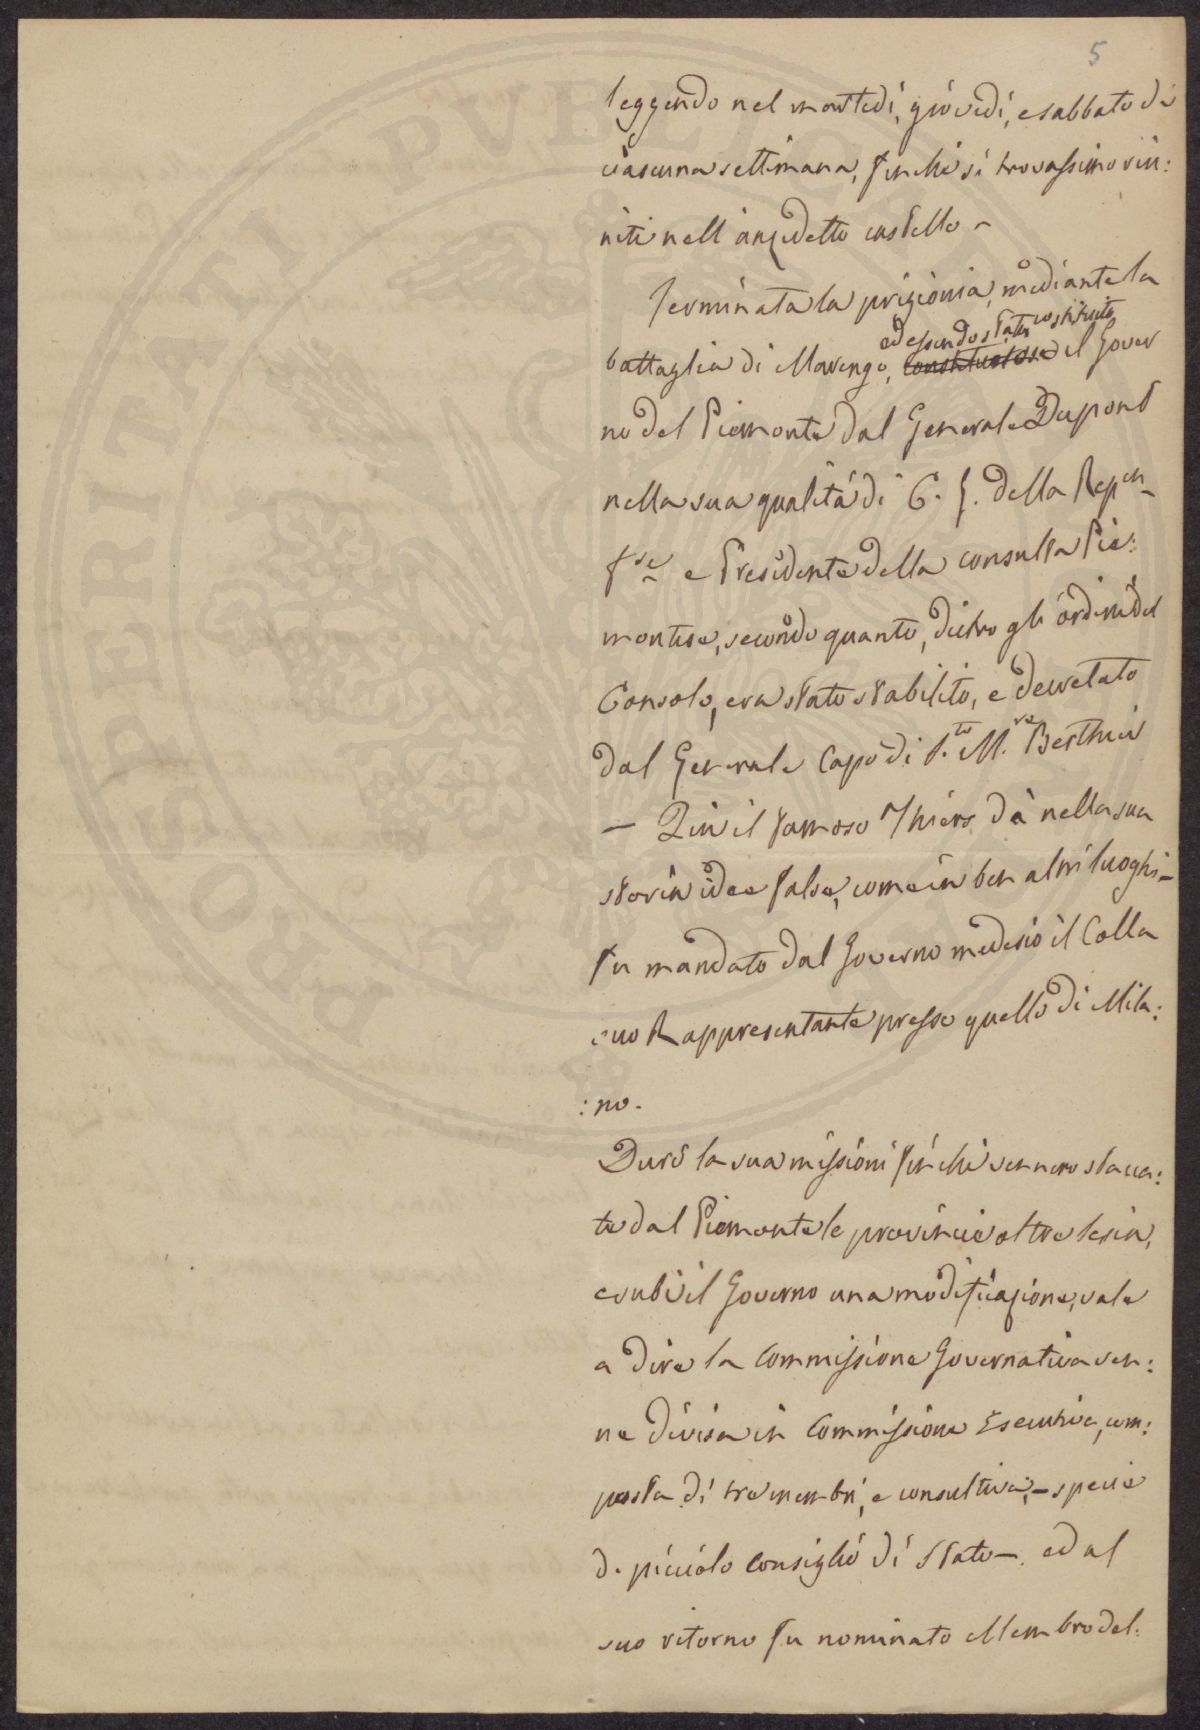 5
leggendo nel martedì, giovedì, e sabbato di
ciascuna settimana, finchè si trovassimo riu:
niti nell'anzidetto castello -
Terminata la prigionia, mediante la
ed essendo stato costituito
battaglia di Marengo, constituitosi il Gover
no del Piemonte dal Generale Dupont
nella sua qualità di C. G. della Repca
fse e Presidente della consulta Pie:
montese, secondo quanto, dietro gli ordini del
Console, era stato stabilito, e decretato
dal Generale Capo di S.to M.re Berthier
— Quivi il famoso Thiers dà nella sua
storia idee false, come in ben altri luoghi -
fu mandato dal Governo medesio il Colla
suo Rappresentante presso quello di Mila:
:no.
Durò la sua missioni finchè vennero stacca:
te dal Piemonte le provincie oltre Sesia,
e subì il Governo una modificazione, vale
a dire la Commissione Governativa ven:
ne divisa in Commissione Esecutiva, com:
posta di tre membri, e consultiva, - specie
di picciolo Consiglio di Stato - ed al
suo ritorno fu nominato Membro del:
PRO DEPERITATI PVBL